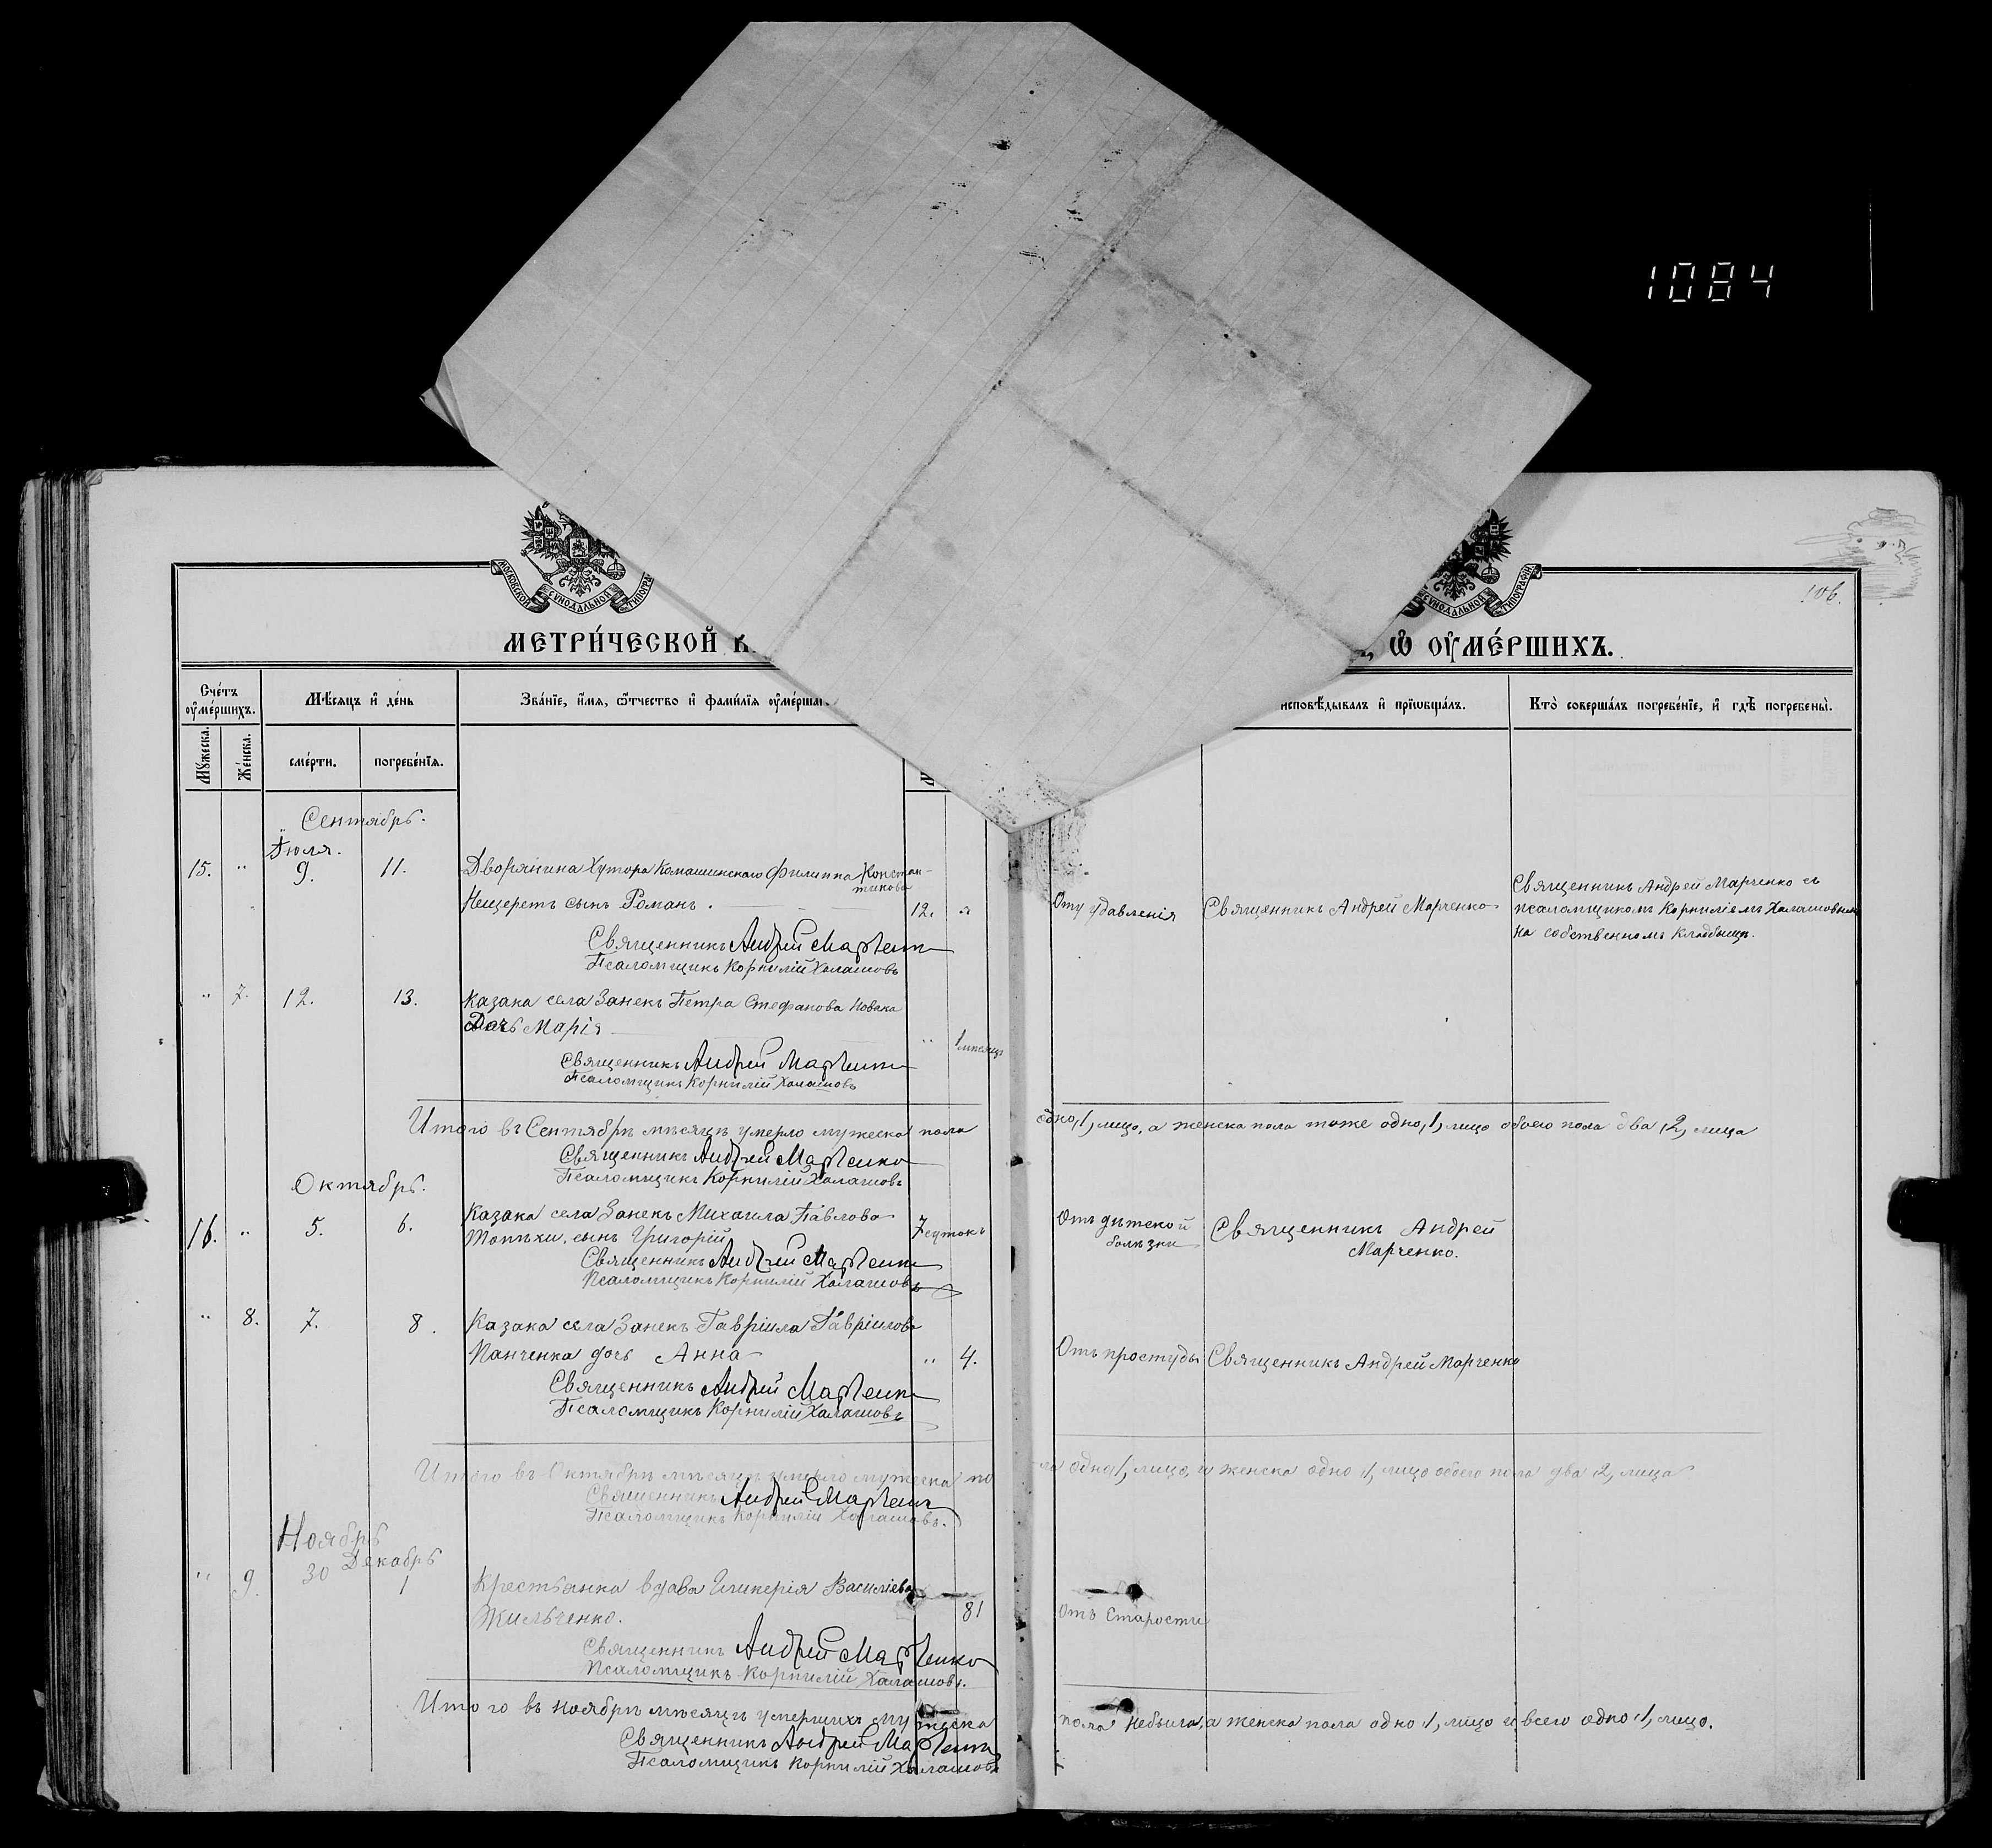 1084
МОСКОВСКОЙ СѴНОДАЛЬНОЙ ТИПОГРА
СѴНОДАЛЬНОЙ ТИПОГРАФІИ
106.
МЕТРИ́ЧЕСКОЙ К
Ѡ ОУМЕ́РШИХЪ.
Сче́тъ оумéршихъ.
Мѣ́сяцъ и де́нь
Зва́нїе, и́мя, ѻ́тчество и фами́лїя оумéрша
исповѣ́дывалъ и прїѡбща́лъ.
Кто̀ соверша́лъ погребе́нїе, и гдѣ̀ погребены̀.
Мꙋ́жеска.
Же́нска.
сме́рти.
погребе́нїя.
Сентябрь.
Іюля.
15. " 9. 11. Дворянина Хутора Комашинскаго Филиппа Констан-
тинова
Нещеретъ сынъ Романъ. 12. "
Отъ удавленія Священникъ Андрей Марченко
Священникъ Андрей Марченко съ
псаломщикомъ Корниліемъ Халашовымъ
на собственномъ кладбищѣ.
Священникъ Андрей Марченко
Псаломщикъ Корнилій Халашовъ
" 7. 12. 13. Казака села Занекъ Петра Стефанова Новака
Дочь Марія " 1 мѣсяцъ
Священникъ Андрей Марченко
Псаломщикъ Корнилій Халашовъ
Итого въ Сентябрѣ мѣсяцѣ умерло мужеска пола одно, 1, лицо, а женска пола тоже одно, 1, лицо обоего пола два, 2, лица
Священникъ Андрей Марченко
Псаломщикъ Корнилій Халашовъ
Октябрь.
16. " 5. 6. Казака села Занекъ Михаила Павлова
сынъ Григорій 7 сутокъ
Отъ дѣтской болѣзни Священникъ Андрей
Марченко.
Священникъ Андрей Марченко
Псаломщикъ Корнилій Халашовъ
" 8. 7. 8. Казака села Занекъ Гавріила Гаврілова
Панченка дочь Анна " 4. Отъ простуды Священникъ Андрей Марченко
Священникъ Андрей Марченко
Псаломщикъ Корнилій Халашовъ
Итого въ Октябрѣ мѣсяцѣ умерло мужеска по ла одно, 1, лицо, и женска одно, 1, лицо обоего пола два, 2, лица
Священникъ Андрей Марченко
Псаломщикъ Корнилій Халашовъ.
Ноябрь
Декабрь
" 9. 30 1 Крестьянка вдова Гликерія Василіева
Жильченко. 81 Отъ Старости
Священникъ Андрей Марченко
Псаломщикъ Корнилій Халашовъ.
Итого въ Ноябрѣ мѣсяцѣ умершихъ мужеска пола небыло, а женска пола одно, 1, лицо и всего одно, 1, лицо.
Священникъ Андрей Марченко
Псаломщикъ Корнилій Халашовъ